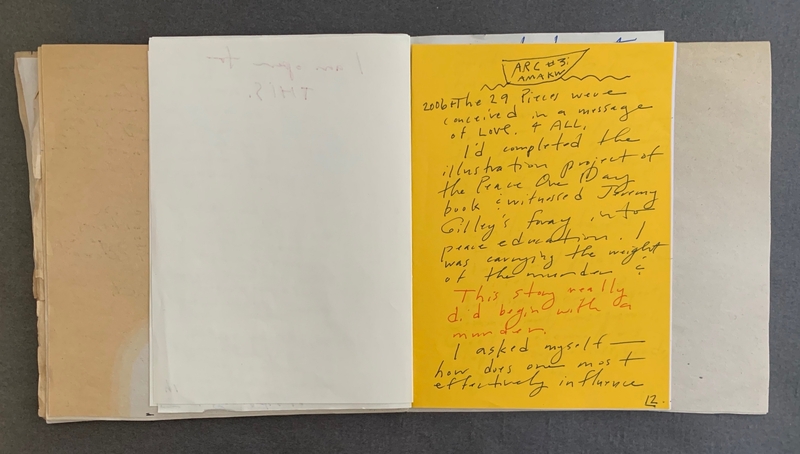 I am open for
THIS.
ARC #3:
AMAKW
2006 The 29 Pieces were
conceived in a message
of Love. 4 ALL.
I'd completed the
illustration project of
the Peace One Day
book & witnessed Jeremy
Gilley's foray into
peace education. I
was carrying the weight
of the murder &
This story really
did begin with a
murder.
I asked myself —
how does one most
effectively influence
12